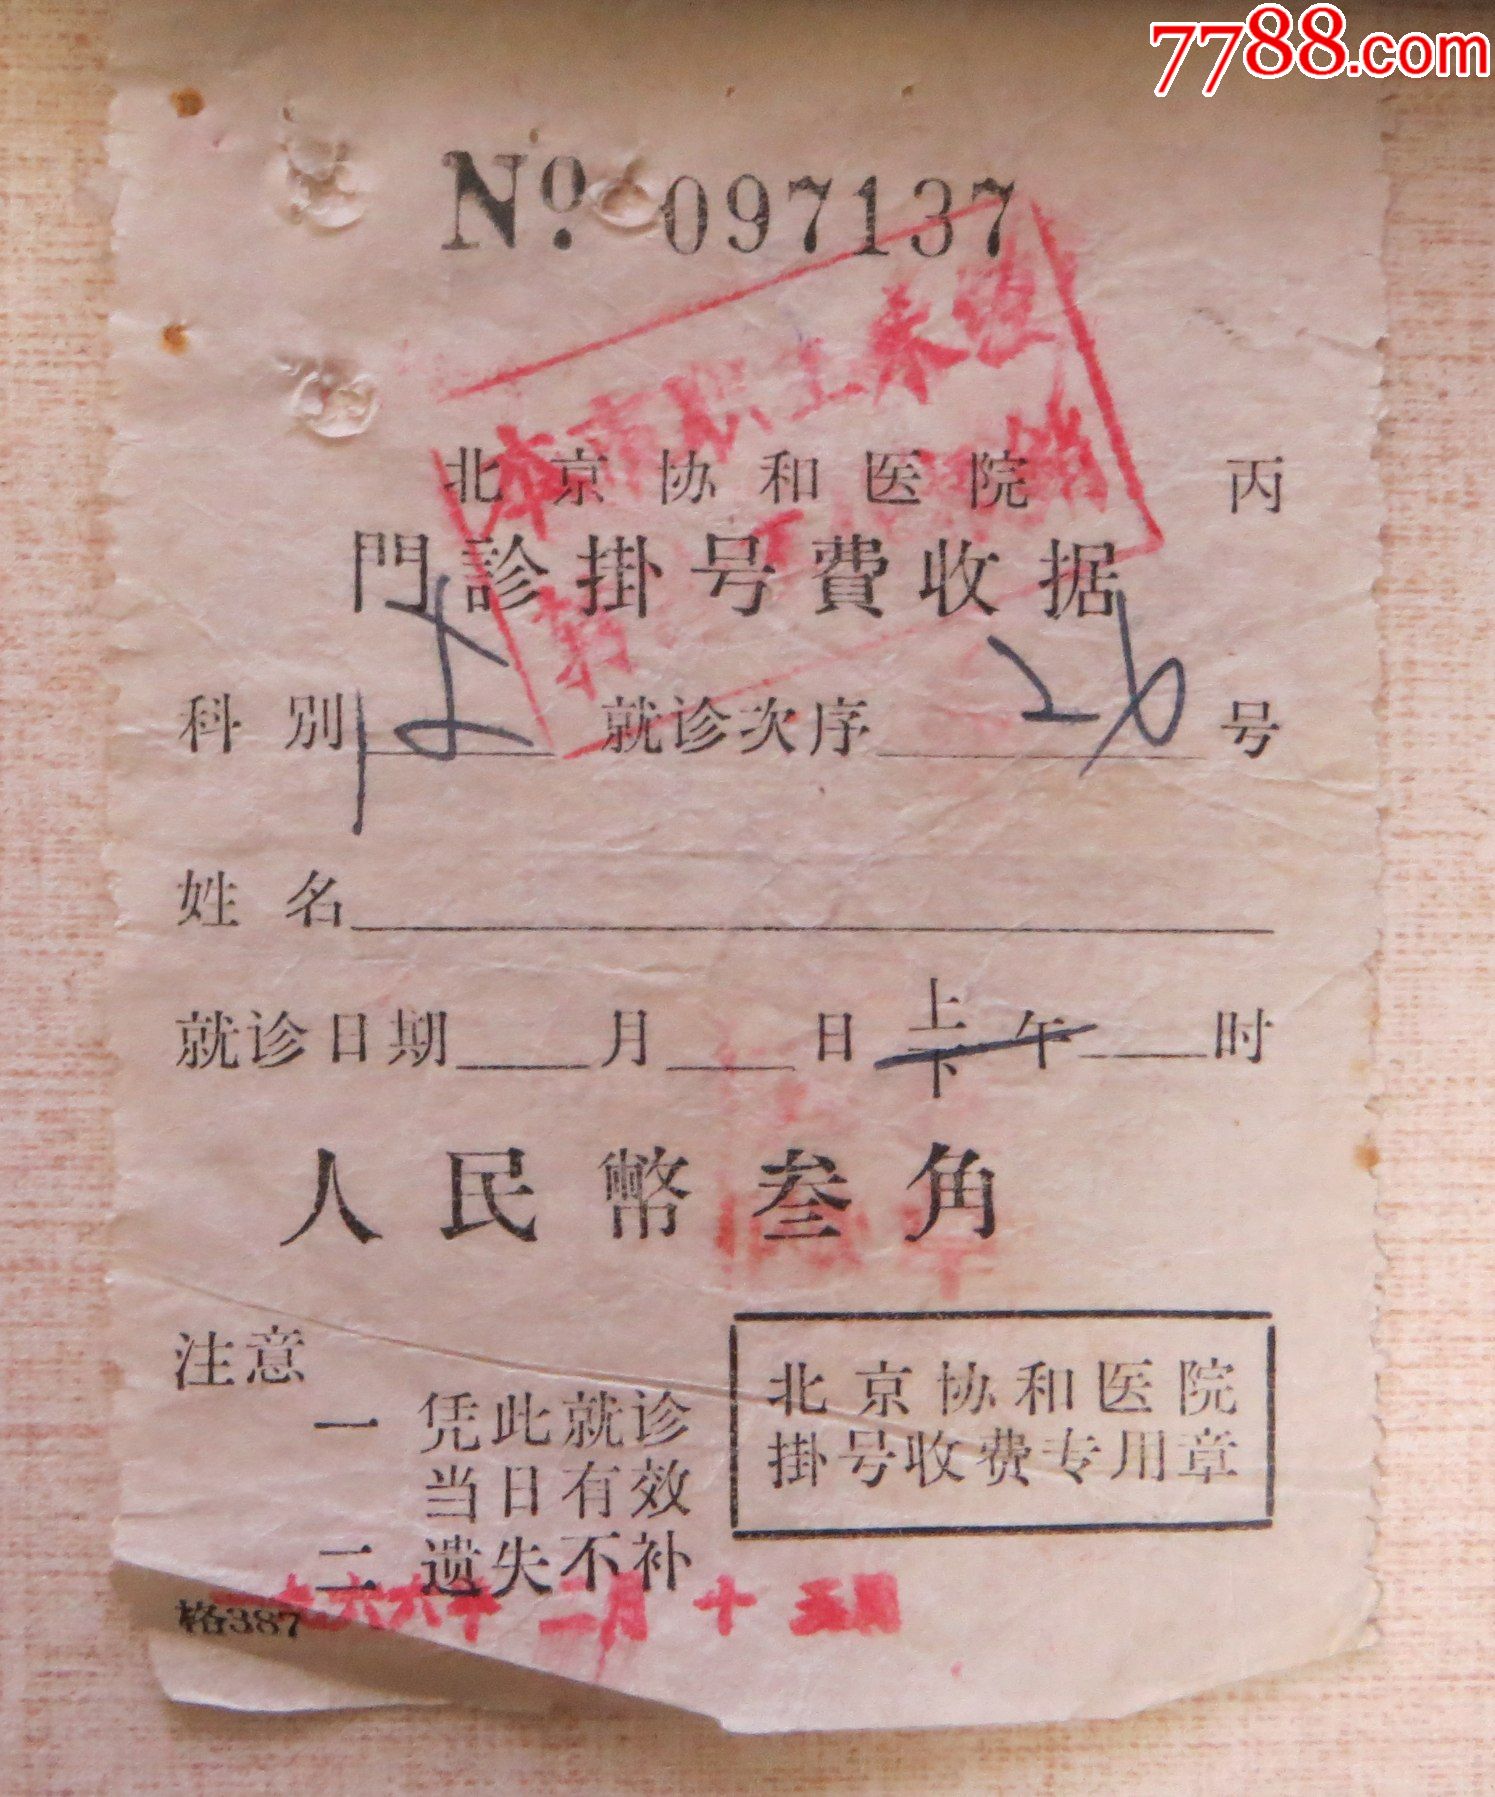 7788.com
No. 097137
北京协和医院 丙
門診掛号費收据
科别 就诊次序 26 号
姓名
就诊日期 月 日 上下午 时
人民幣叁角
注意
一 凭此就诊
当日有效
二 遗失不补
北京协和医院
掛号收费专用章
格387
六六年二月十五